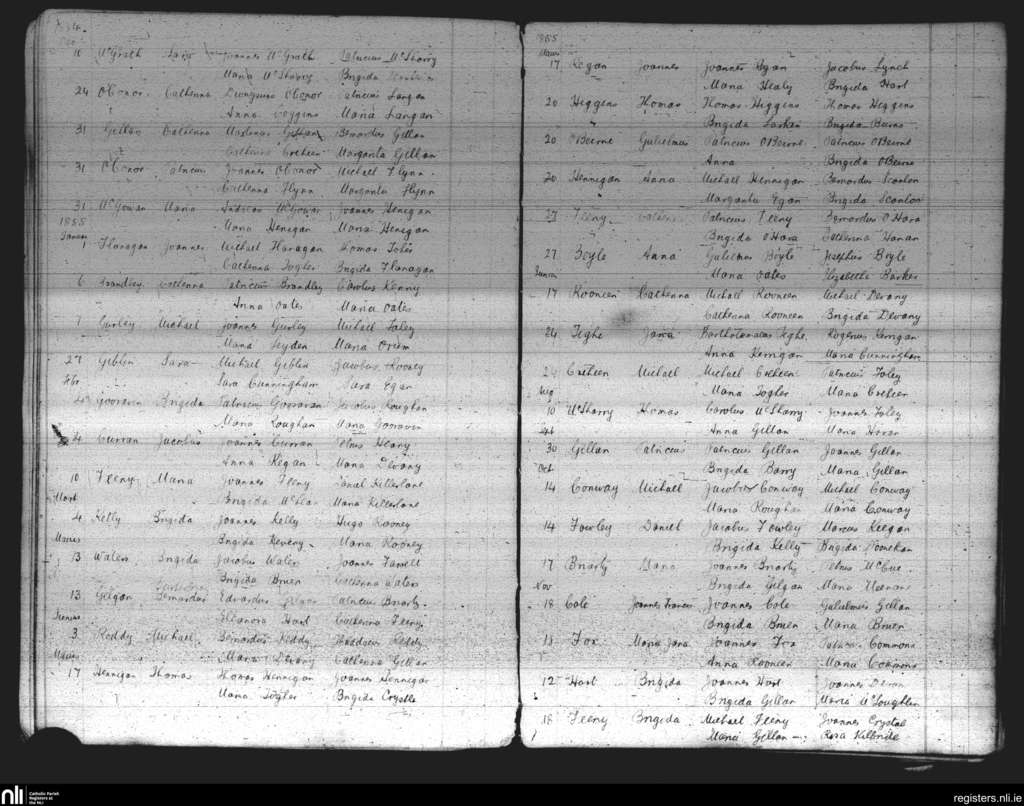 10 McGrath Sara Joannes McGrath Patricius McSharry
Maria McSharry Brigida
24 OConor Catherina Dionysius OConor Patricius Langan
Anna Coggins Maria Langan
31 Gillan Catherina Gillan Bernardus Gillan
Catherina Creheen Margarita Gillan
31 OConor Patricius Joannes OConor Michael Flynn
Catherina Flynn Margarita Flynn
31 McGowan Maria Andreas McGowan Joannes Henegan
1855 Maria Henegan Maria Henegan
1 Flanagan Joannes Michael Flanagan Thomas
Catherina Togher Brigida Flanagan
6 Brandley Catherina Patricius Brandley Carolus Kenny
Anna Oates Maria Oates
7 Gurley Michael Joannes Gurley Michael Foley
Maria Leyden Maria
27 Giblin Sara Michael Giblin Jacobus Rooney
Feb Sara Cunningham Sara Egan
4 Gooravin Brigida Patricius Gooravan Jacobus Roughan
Maria Roughan Maria Gooravin
4 Curran Jacobus Joannes Curran Petrus Heany
Anna Regan Maria Devany
10 Feeny Maria Joannes Feeny Daniel Killerlane
Mart Brigida Maria Killerlane
4 Kelly Brigida Joannes Kelly Hugo Rooney
Maius Brigida Keveny Maria Rooney
13 Waters Brigida Jacobus Waters Joannes Farrell
Brigida Bruen Catherina Waters
13 Gilgan Bernardus Edvardus Gilgan Patricius Briarty
Eleanora Hart Catherina Feeny
3 Reddy Michael Bernardus Reddy Thaddeus Reddy
Maius Maria Devany Catherina Gillan
17 Hennigan Thomas Thomas Hennigan Joannes Hennigan
Maria Togher Brigida Crystle
1855
Maius
17 Regan Joannes Joannes Ryan Jacobus Lynch
Maria Healy Brigida Hart
20 Higgens Thomas Thomas Higgens Thomas Higgens
Brigida Larken Brigida Beirne
20 OBeirne Gulielmus Patricius OBeirne Patricius OBeirne
Anna Brigida OBeirne
20 Hennigan Anna Michael Hennigan Bernardus Scanlon
Margarita Egan Brigida Scanlon
27 Feeny Patricius Feeny Bernardus OHara
Brigida OHara Catherina Hanan
27 Boyle Anna Gulielmus Boyle Josephus Boyle
Junius Maria Oates Elizabetha Barker
17 Rooneen Catherina Michael Rooneen Michael Devany
Catherina Rooneen Brigida Devany
24 Teghe Jana Bartholomaeus Teghe Rogerius Kerrigan
Anna Kerrigan Maria Cunningham
24 Creheen Michael Michael Creheen Patricius Foley
Aug Maria Togher Maria Creheen
10 McSharry Thomas Carolus McSharry Joannes Foley
Sept Anna Gillan Maria Horan
30 Gillan Patricius Patricius Gillan Joannes Gillan
Oct Brigida Barry Maria Gillan
14 Conway Michael Jacobus Conway Michael Conway
Maria Roughan Maria Conway
14 Fowley Daniel Jacobus Fowley Marcus Keegan
Brigida Kelly Brigida Noonehan
17 Briarty Maria Joannes Briarty Petrus McCue
Nov Brigida Gilgan Maria
18 Cole Joannes Francis Joannes Cole Gulielmus Gillan
Brigida Bruen Maria Bruen
11 Fox Maria Jana Joannes Fox Patricius Commons
Anna Rooneen Maria Commons
12 Hart Brigida Joannes Hart Joannes
Brigida Gillan Maria McLoughlin
18 Feeny Brigida Michael Feeny Joannes Crystal
Maria Gillan Rosa Kilbride
nli Catholic Parish
Registers at
the NLI
registers.nli.ie